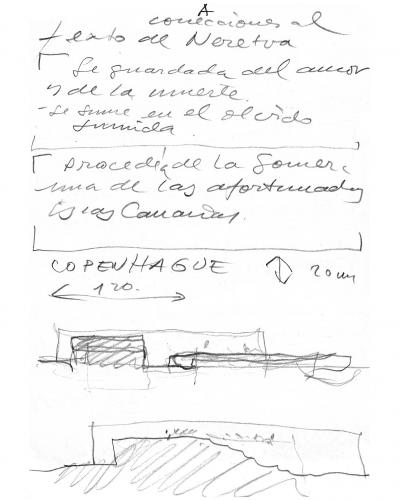 A
conecciones al
texto de Neretva
Se guardada del amor
y de la muerte.
- se sume en el olvido
sumida.
procedía de la Gomera
una de las afortunadas
islas Canarias.
COPENHAGUE 20 cm
120.